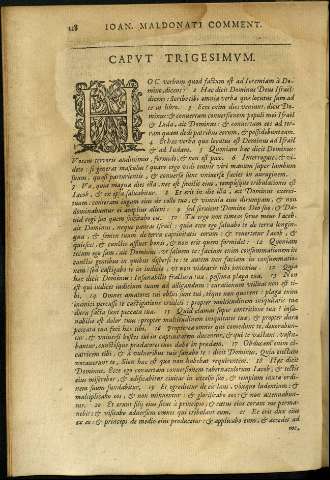 128 IOAN. MALDONATI COMMENT.
CAPVT TRIGESIMVM.
HOC verbum quod factum est ad Ieremiam à Do-
mino, dicens: 2 Hæc dicit Dominus Deus Israel,
dicens: Scribe tibi omnia verba quæ locutus sum ad
te in libro. 3 Ecce enim dies veniunt, dicit Do-
minus: & conuertam conuersionem populi mei Israel
& Iuda, ait Dominus: & conuertam eos ad ter-
ram quam dedi patribus eorum, & possidebunt eam.
4 Et hæc verba quæ locutus est Dominus ad Israel
& ad Iudam. 5 Quoniam hæc dicit Dominus:
Vocem terroris audiuimus, formido, & non est pax. 6 Interrogate, & vi-
dete si generat masculus? quare ergo vidi omnis viri manum super lumbum
suum, quasi parturientis, & conuersæ sunt vniuersæ facies in auruginem.
7 Væ, quia magna dies illa, nec est similis eius, tempusque tribulationis est
Iacob, & ex ipsa saluabitur. 8 Et erit in die illa, ait Dominus exerci-
tuum: conteram iugum eius de collo tuo, & vincula eius dirumpam, & non
dominabuntur ei amplius alieni: 9 sed seruient Domino Deo suo, & Da-
uid regi suo quem suscitabo eis. 10 Tu ergo ne timeas serue meus Iacob,
ait Dominus, neque paueas Israel: quia ecce ego saluabo te de terra longin-
qua, & semen tuum de terra captiuitatis eorum: & reuertetur Iacob, &
quiescet, & cunctis affluet bonis, & non erit quem formidet: 11 Quoniam
tecum ego sum, ait Dominus, vt saluem te: faciam enim consummationem in
cunctis gentibus in quibus dispersi te: te autem non faciam in consummatio-
nem: sed castigabo te in iudicio, vt non videaris tibi innoxius. 12 Quia
hæc dicit Dominus: Insanabilis fractura tua, pessima plaga tua. 13 Non
est qui iudicet iudicium tuum ad alligandum: curationum vtilitas non est ti-
bi. 14 Omnes amatores tui obliti sunt tui, teque non quærent: plaga enim
inimici percussi te castigatione crudeli: propter multitudinem iniquitatis tuæ
dura facta sunt peccata tua. 15 Quid clamas super contritione tua? insa-
nabilis est dolor tuus: propter multitudinem iniquitatis tuæ, & propter dura
peccata tua feci hæc tibi. 16 Propterea omnes qui comedunt te, deuorabun-
tur, & vniuersi hostes tui in captiuitatem ducentur, & qui te vastant, vasta-
buntur, cunctosque prædatores tuos dabo in prædam. 17 Obducam enim ci-
catricem tibi, & à vulneribus tuis sanabo te: dicit Dominus. Quia eiectam
vocauerunt te, Sion: hæc est quæ non habebat requirentem. 18 Hæc dicit
Dominus. Ecce ego conuertam conuersionem tabernaculorum Iacob, & tectis
eius miserebor, & ædificabitur ciuitas in excelso suo, & templum iuxta ordi-
nem suum fundabitur. 19 Et egredietur de eis laus, voxque ludentium: &
multiplicabo eos, & non minuentur, & glorificabo eos: & non attenuabun-
tur. 20 Et erunt filij eius sicut à principio, & cœtus eius coram me perma-
nebit: & visitabo aduersum omnes qui tribulant eum. 21 Et erit dux eius
ex eo: & princeps de medio eius producetur: & applicabo eum, & accedet ad
me,